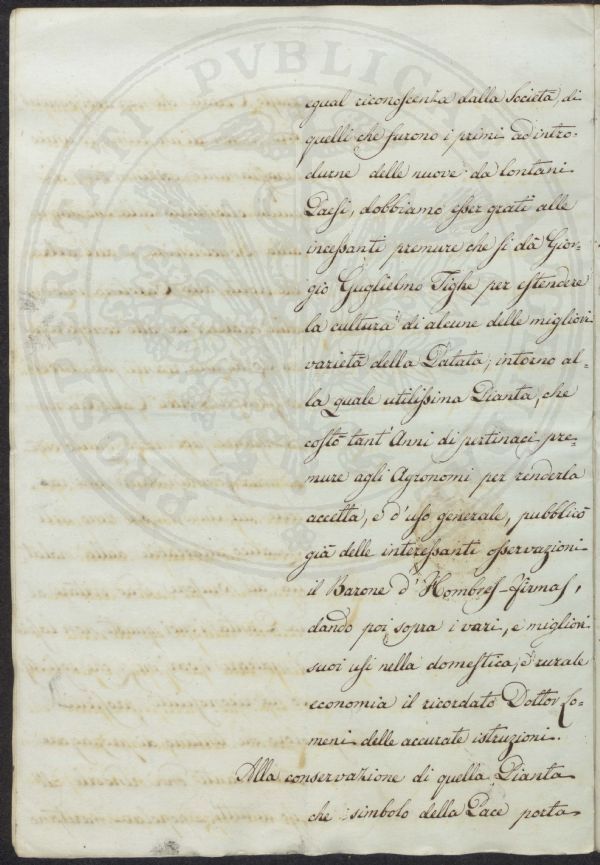 egual riconoscenza dalla Società, di
quelli che furono i primi ad intro-
durne delle nuove da lontani
Paesi, dobbiamo esser grati alle
incessanti premure che si dà Gior-
gio Guglielmo Tighe per estendere
la cultura di alcune delle migliori
varietà della Patata; intorno al-
la quale utilissima Pianta, che
costò tant'Anni di pertinaci pre-
mure agli Agronomi per renderla
accetta, e d'uso generale, pubblicò
già delle interessanti osservazioni
il Barone d'Hombres-Firmas,
dando poi sopra i vari, e migliori
suoi usi nella domestica, e rurale
economia il ricordato Dottor Lo-
meni delle accurate istruzioni.
Alla conservazione di quella Pianta
che simbolo della Pace porta
PROSPERITATI PVBLICAE